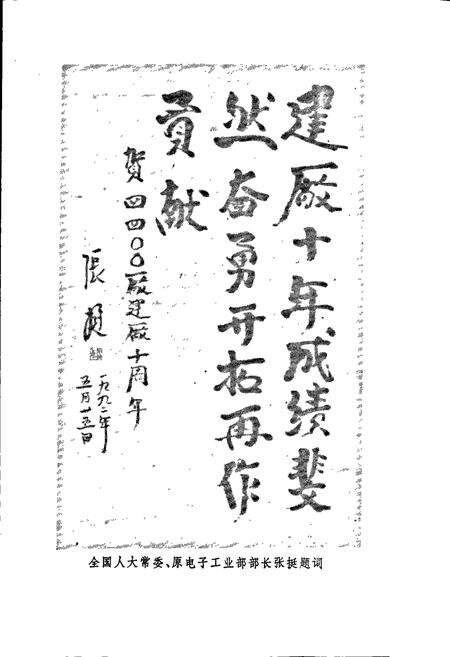 建厰十年成绩斐
然奋勇开拓再作
贡献
贺四四〇〇厰建厰十周年
张挺
一九九二年
五月廿五日
全国人大常委、原电子工业部部长张挺题词